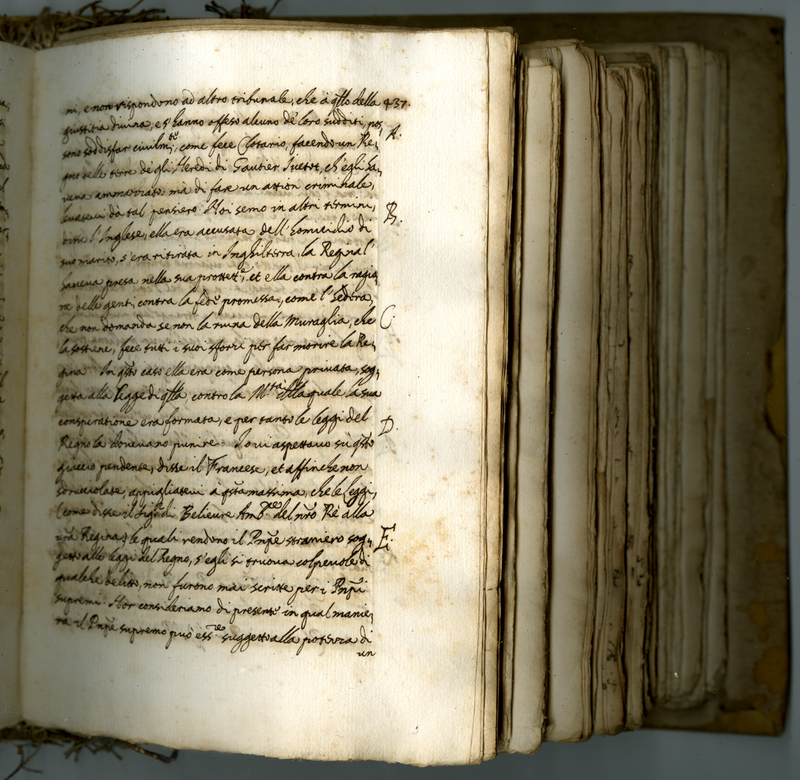 ni, e non rispondono ad altro tribunale, che à q̃llo della 437.
giustitia divina, e s'hanno offeso alcuno de' loro sudditi, pos,
sono soddisfar civilm.te, come fece Clotario, facendo un Re, A.
gno delle terre de gli Heredi di Gautier Ivetot, ch'egli ha,
veva ammazzato: mà di fare un attion criminale,
levatevi da tal pensiero. Noi semo in altri termini,
disse l'Inglese, ella era accusata dell'homicidio di B.
suo marito, s'era ritirata in Inghilterra, la Regina l'
haveva presa nella sua protett.e, et ella contra la ragio,
ne delle genti, contra la fede promessa, come l'hedera,
che non domanda se non la ruina della Muraglia, che C.
la sostiene, fece tutti i suoi sforzi per far morire la Re,
gina. In q̃sto caso ella era come persona privata, sog,
getta alla legge di q̃lla contro la M.tà della quale la sua
conspiratione era formata, e per tanto le leggi del D.
Regno la dovevano punire. Io vi aspettavo su q̃sto
giaccio pendente, disse il Francese, et affinche non
sdrucciolate, appigliatevi à q̃sta massima, che le leggi,
(come disse il Sig.r di Belieure Amb.re del nr̃o Rè alla
vr̃a Regina) le quali rendono il Pnp̃e straniero sog, E.
getto alle leggi del Regno, s'egli si truova colpevole di
qualche delitto, non furono mai scritte per i Pnp̃i
supremi. Hor consideriamo di presente in qual manie,
ra il Pnp̃e supremo può ess.re suggetto alla potenza di
un